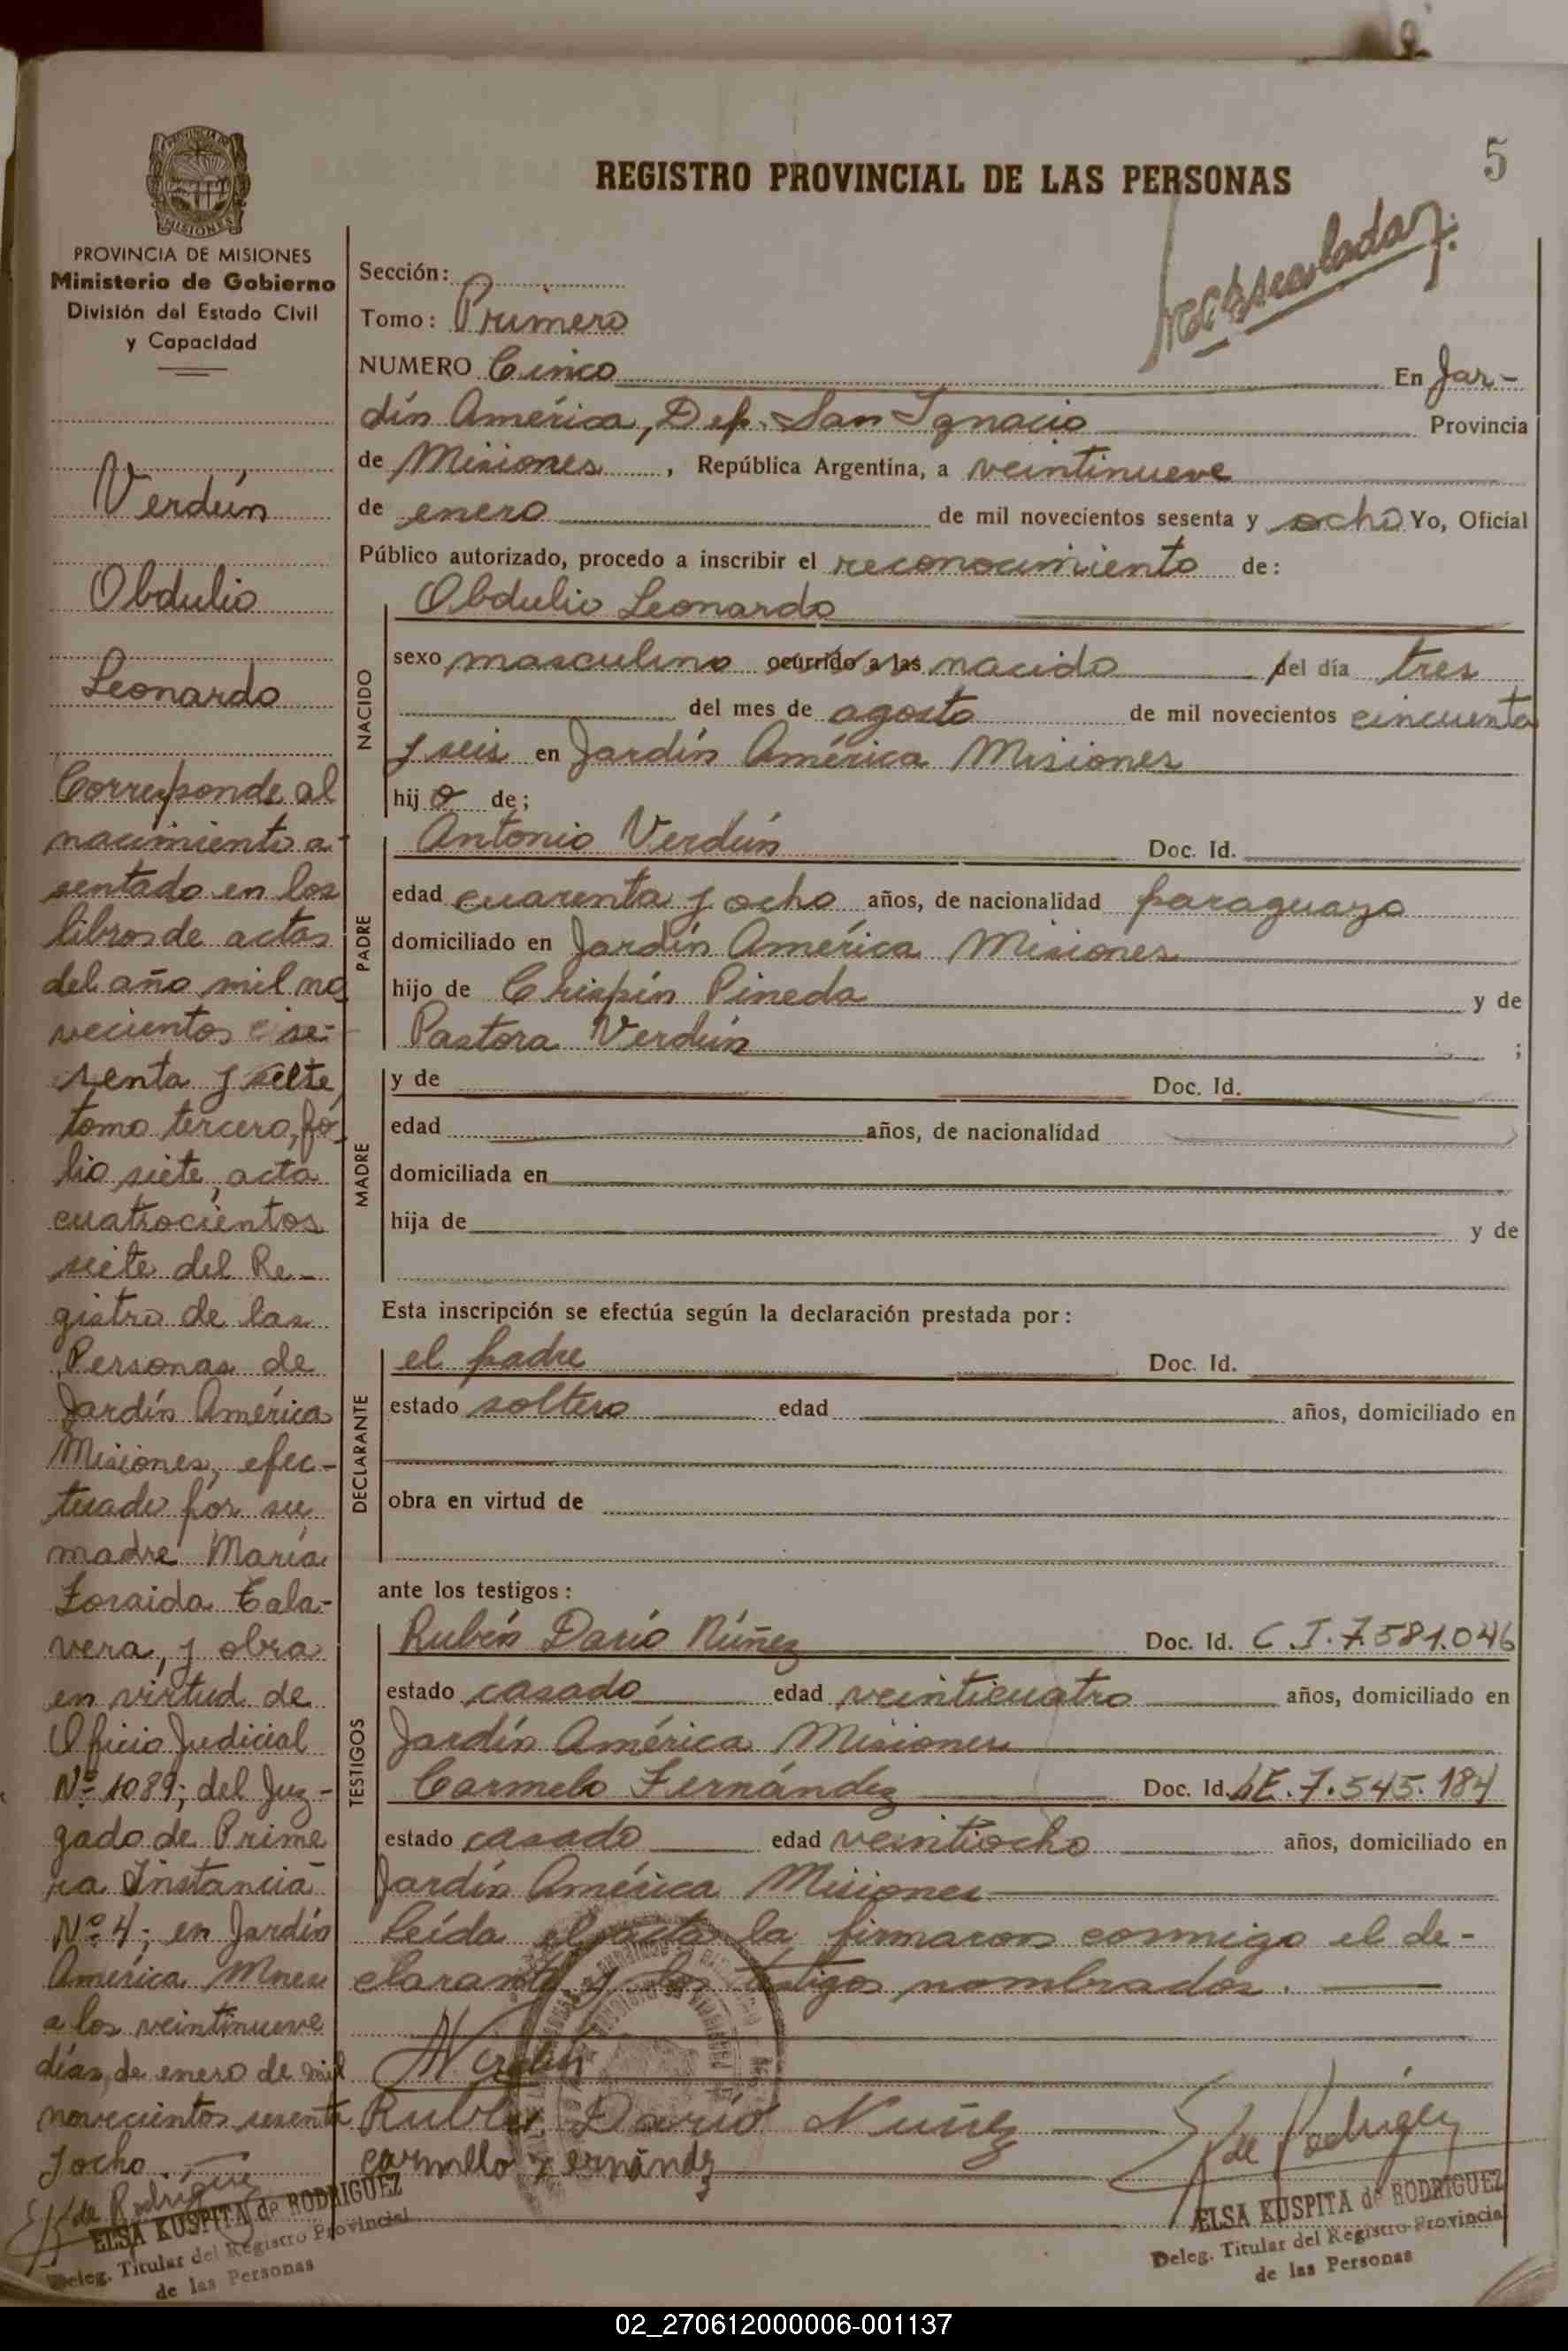 5
REGISTRO PROVINCIAL DE LAS PERSONAS
PROVINCIA DE MISIONES
Ministerio de Gobierno
División del Estado Civil
y Capacidad
Verdún
Obdulio
Leonardo
Corresponde al
nacimiento a-
sentado en los
libros de actas
del año mil no
vecientos se-
senta y siete,
tomo tercero, fo-
lio siete, acta
cuatrocientos
siete del Re-
gistro de las
Personas de
Jardín América
Misiones, efec-
tuado por su
madre María
Zoraida Tala-
vera, y obra
en virtud de
Oficio Judicial
Nº 1089; del Juz-
gado de Prime
ra Instancia
Nº 4; en Jardín
América Mnes
a los veintinueve
días de enero de mil
novecientos sesenta
y ocho
E K de Rodríguez
ELSA KUSPITA de RODRIGUEZ
Deleg. Titular del Registro Provincial
de las Personas
Sección:
Tomo: Primero
NUMERO Cinco En Jar-
dín América, Dep. San Ignacio Provincia
de Misiones, República Argentina, a veintinueve
de enero de mil novecientos sesenta y ocho Yo, Oficial
Público autorizado, procedo a inscribir el reconocimiento de:
NACIDO
Obdulio Leonardo
sexo masculino ocurrido a las nacido del día tres
del mes de agosto de mil novecientos cincuenta
y seis en Jardín América Misiones
hijo de;
PADRE
Antonio Verdún Doc. Id.
edad cuarenta y ocho años, de nacionalidad paraguayo
domiciliado en Jardín América Misiones
hijo de Crispín Pineda y de
Pastora Verdún ;
MADRE
y de Doc. Id.
edad años, de nacionalidad
domiciliada en
hija de y de
Esta inscripción se efectúa según la declaración prestada por:
DECLARANTE
el padre Doc. Id.
estado soltero edad años, domiciliado en
obra en virtud de
ante los testigos:
TESTIGOS
Rubén Darío Núñez Doc. Id. C.I. 7.581.046
estado casado edad veinticuatro años, domiciliado en
Jardín América Misiones
Carmelo Fernández Doc. Id. LE. 7.545.184
estado casado edad veintiocho años, domiciliado en
Jardín América Misiones
Leída el acta la firmaron conmigo el de-
clarante y los testigos nombrados.
Rubén Darío Nuñez
Carmelo Fernández
E K de Rodríguez
ELSA KUSPITA de RODRIGUEZ
Deleg. Titular del Registro Provincial
de las Personas
02_270612000006-001137